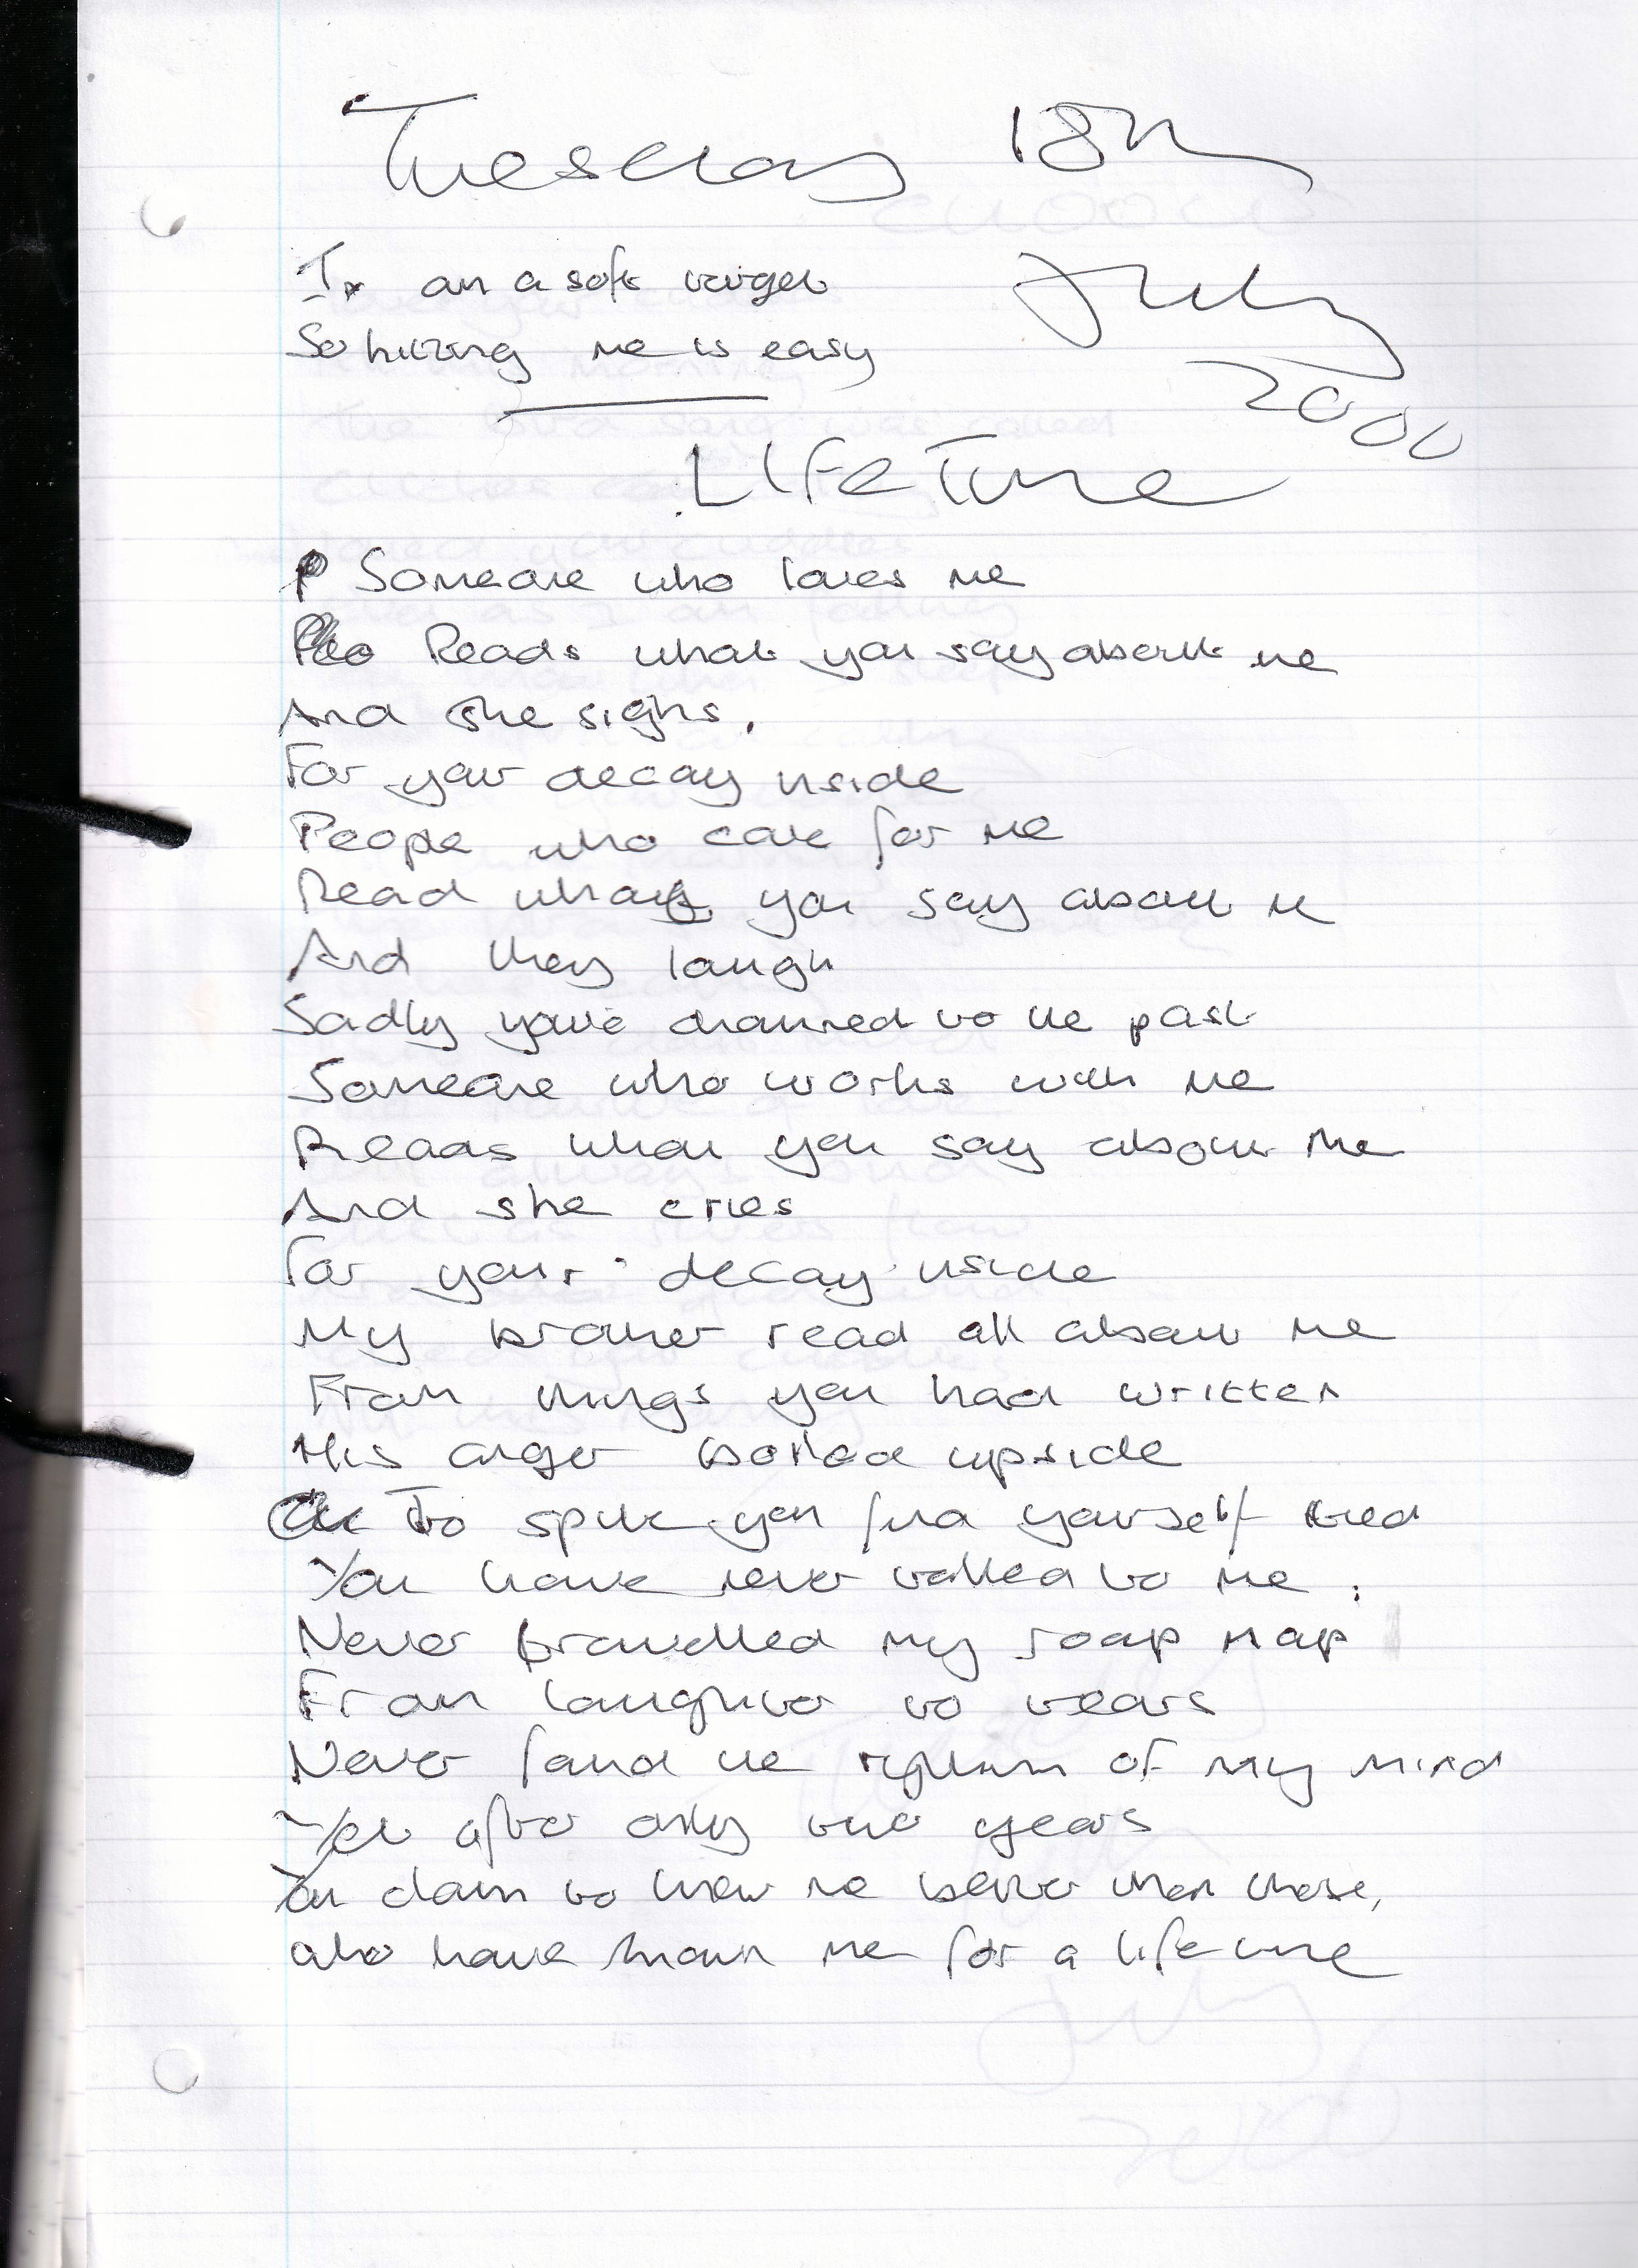 Tuesday 18th
July
2000
I am a soft target
So hitting me is easy
LifeTime
Someone who loves me
Reads what you say about me
And she sighs.
For your decay inside
People who care for me
Read what you say about me
And they laugh
Sadly you're chained to the past
Someone who works with me
Reads what you say about me
And she cries
For your decay inside
My brother read all about me
From things you had written
His anger boiled upside
To spite you find yourself tied
You have never talked to me.
Never travelled my roap map
From laughter to tears
Never found the rythmn of my mind
Yet after only two years
You claim to know me better than those,
who have known me for a lifetime